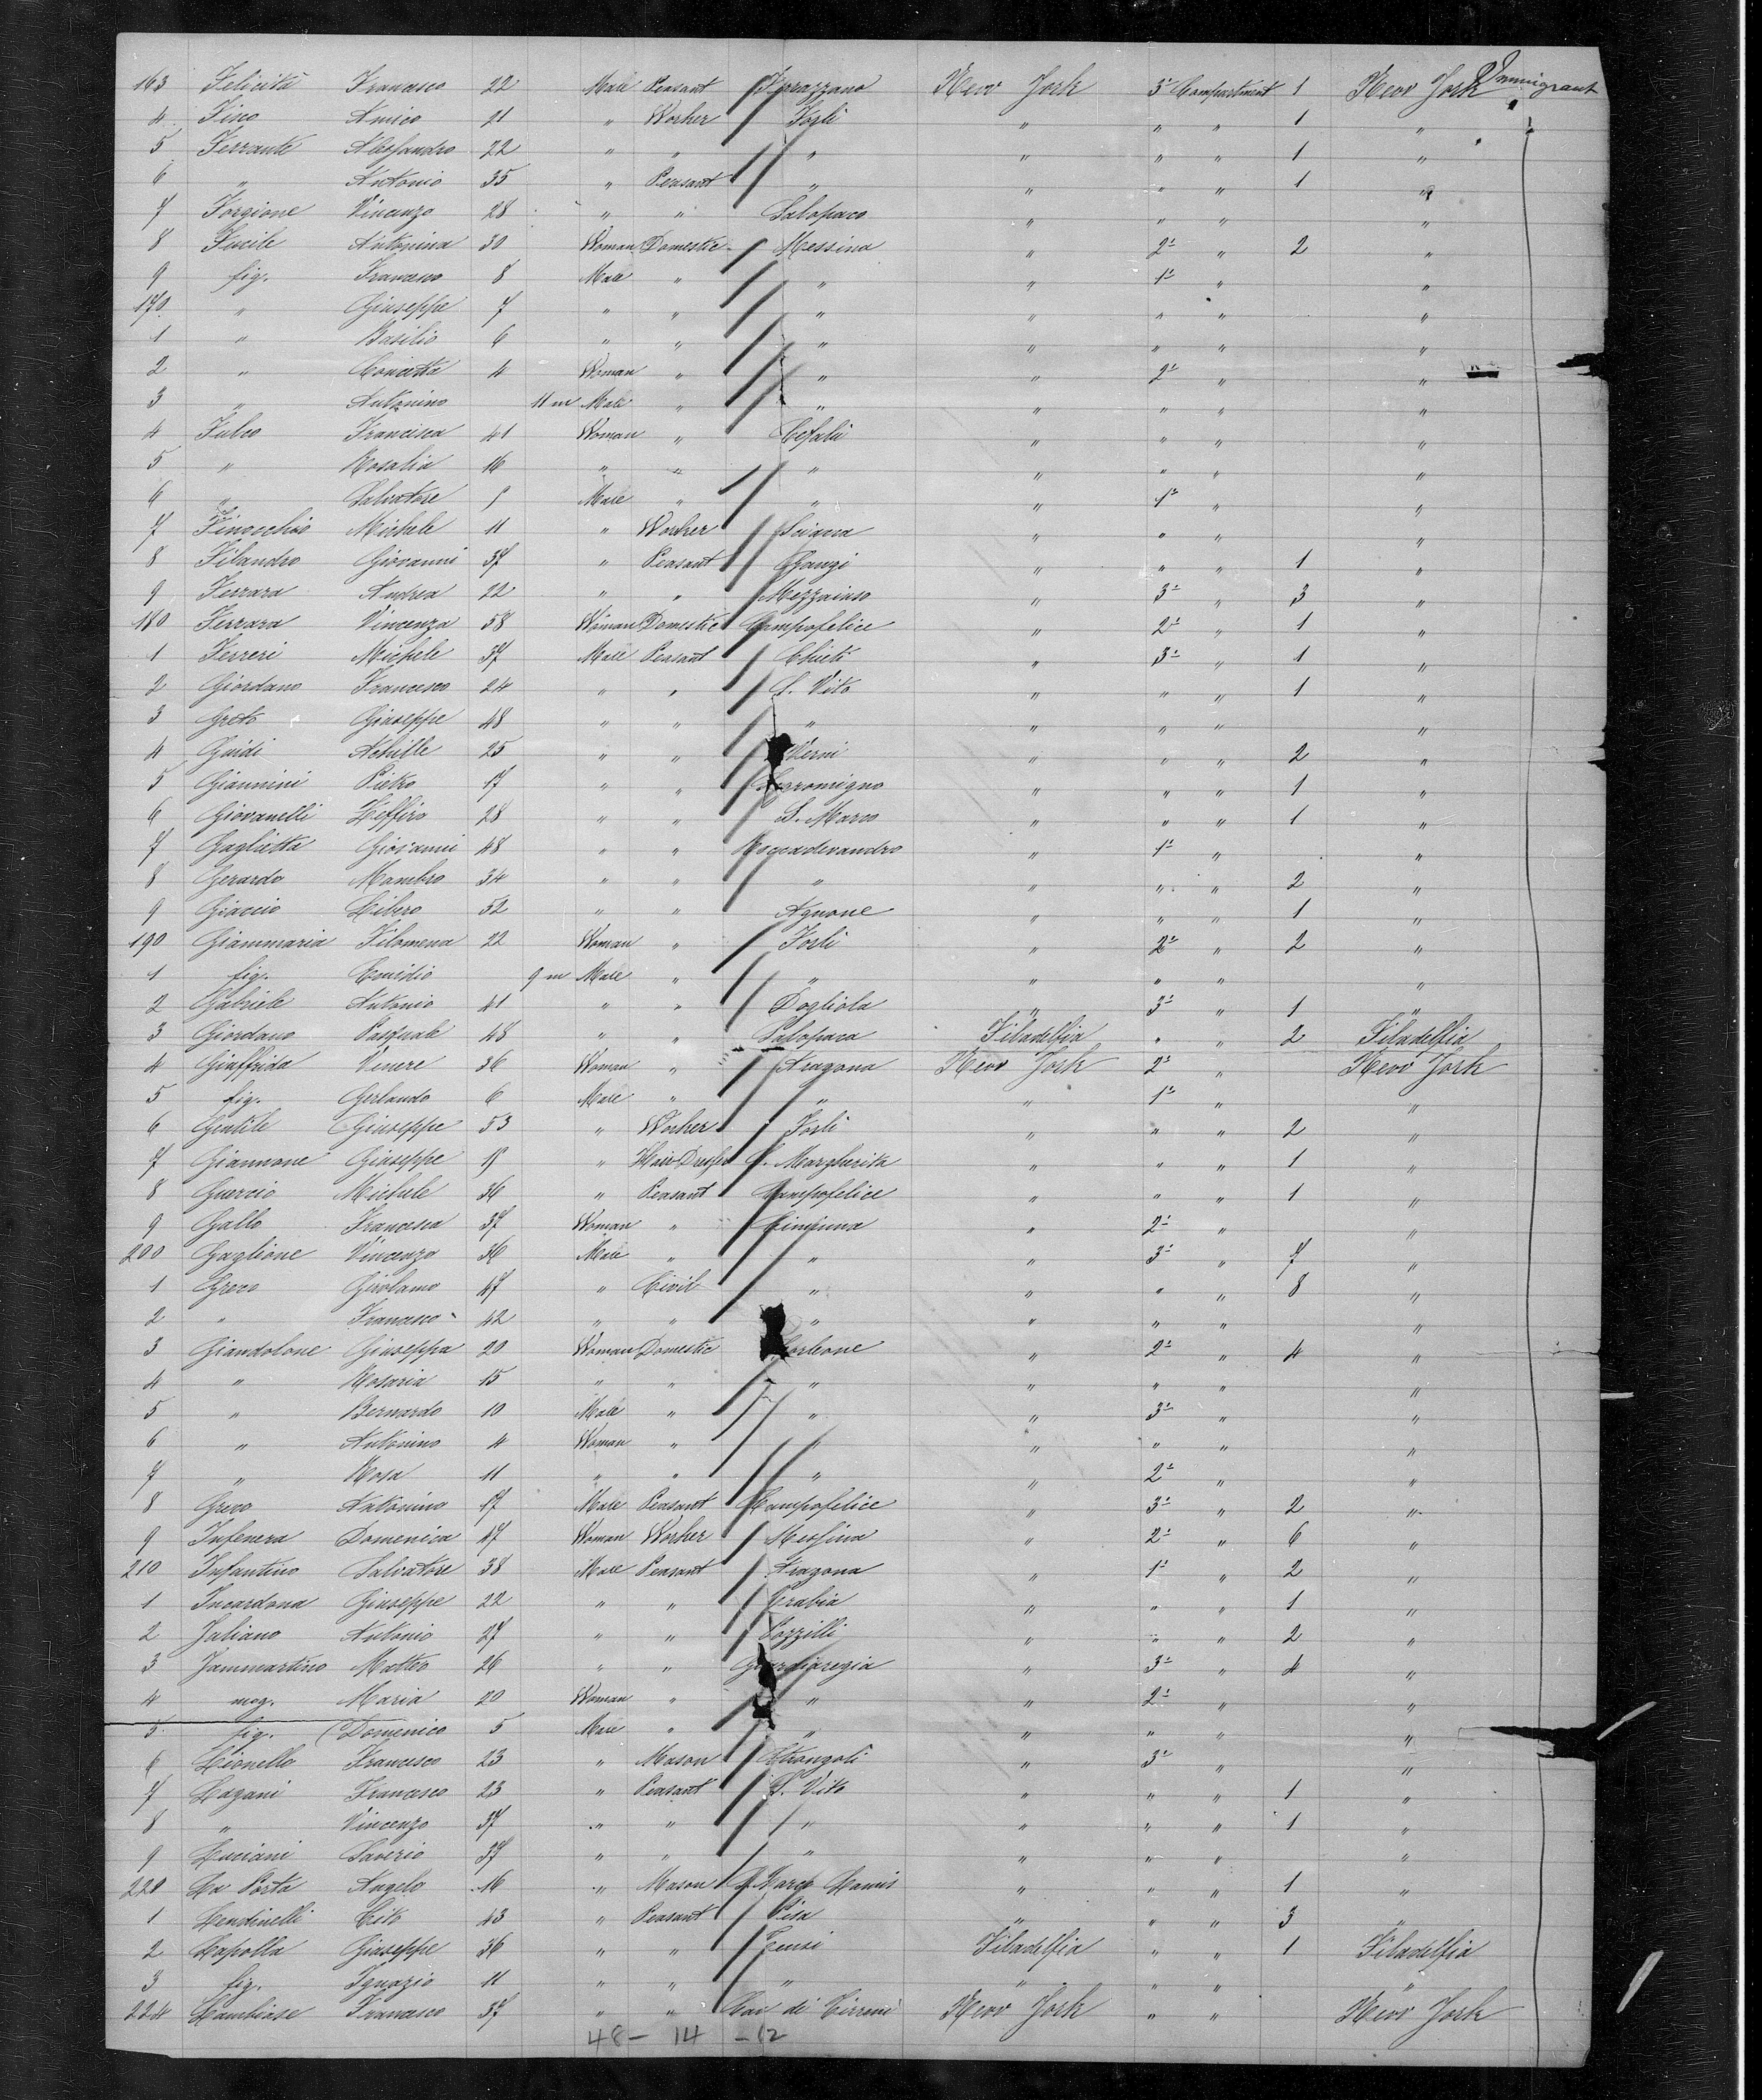 163 Felicità Francesco 22 Male Peasant Ferrazzano New York 3ª Compartment 1 New York Immigrant
4 Fino Amico 21 " Worker Forli " " " 1 "
5 Ferrante Alessandro 22 " " " " " " 1 "
6 " Antonio 35 " Peasant " " " " 1 "
7 Forgione Vincenzo 28 " " Solopaco " " " "
8 Fucile Antonina 30 Woman Domestic Messina " 2ª " 2 "
9 fig. Francesco 8 Male " " " 1ª " "
170 " Giuseppe 7 " " " " " " "
1 " Basilio 6 " " " " " " "
2 " Concetta 4 Woman " " " 2ª " "
3 " Antonino 11 m Male " " " " " "
4 Fulco Francesca 41 Woman " Cefalù " " " "
5 " Rosalia 16 " " " " " " "
6 " Salvatore 9 Male " " " 1ª " "
7 Finocchio Michele 11 " Worker Sciara " " " "
8 Filandro Giovanni 37 " Peasant Gangi " " " 1 "
9 Ferrara Andrea 22 " " Mezzaiuso " 3ª " 3 "
180 Ferrara Vincenza 58 Woman Domestic Campofelice " 2ª " 1 "
1 Ferreri Michele 37 Male Peasant Chieti " 3ª " 1 "
2 Giordano Francesco 24 " " S. Vito " " " 1 "
3 Greto Giuseppe 48 " " " " " " "
4 Guidi Achille 25 " " Verni " " " 2 "
5 Giannini Pietro 17 " " " " " 1 "
6 Giovanelli Zeffiro 28 " " S. Marco " " " 1 "
7 Gaglietta Giovanni 48 " " Roccadevandro " 1ª " "
8 Gerardo Mambro 34 " " " " " " 2 "
9 Giaccio Libero 52 " " Agnone " " " 1 "
190 Giammaria Filomena 22 Woman " Forli " 2ª " 2 "
1 fig. Emidio 9 m Male " " " " " "
2 Gabriele Antonio 41 " " Dogliola " 3ª " 1 "
3 Giordano Pasquale 48 " " Solopaca Filadelfia " " 2 Filadelfia
4 Giuffrida Venere 36 Woman " Aragona New York 2ª " New York
5 fig. Gerlando 6 Male " " " 1ª " "
6 Gentile Giuseppe 53 " Worker Forli " " " 2 "
7 Giannone Giuseppe 19 " Hair Dresser S. Margherita " " " 1 "
8 Guercio Michele 36 " Peasant Campofelice " " " 1 "
9 Gallo Francesca 37 Woman " Ciminna " 2ª " "
200 Gaglione Vincenzo 36 Male " " " 3ª " 7 "
1 Greco Girolamo 47 " Civil " " " " 8 "
2 " Francesco 42 " " " " " " "
3 Giandolone Giuseppa 20 Woman Domestic Corleone " 2ª " 4 "
4 " Rosaria 15 " " " " " " "
5 " Bernardo 10 Male " " " 3ª " "
6 " Antonino 4 Woman " " " " " "
7 " Rosa 11 " " " " 2ª " "
8 Greco Antonino 17 Male Peasant Campofelice " 3ª " 2 "
9 Infenera Domenica 47 Woman Worker Messina " 2ª " 6 "
210 Infantino Salvatore 38 Male Peasant Aragona " 1ª " 2 "
1 Incardona Giuseppe 22 " " Trabia " " " 1 "
2 Juliano Antonio 27 " " Pozzilli " " " 2 "
3 Jammartino Matteo 26 " " Guardiaregia " 3ª " 4 "
4 mog. Maria 20 Woman " " " 2ª " "
5 fig. Domenico 5 Male " " " " " "
6 Lionello Francesco 23 " Mason Strongoli " 3ª " "
7 Lagani Francesco 23 " Peasant S. Vito " " " 1 "
8 " Vincenzo 37 " " " " " " 1 "
9 Luciani Saverio 37 " " " " " " "
220 La Porta Angelo 16 " Mason S. Marco Lamis " " " 1 "
1 Lendinelli Tito 43 " Peasant Pisa " " " 3 "
2 Lapolla Giuseppe 36 " " Filadelfia " " 1 Filadelfia
3 fig. Ignazio 11 " " " " " " "
224 Lambiase Francesco 37 " " Cav di Tirreni New York " " New York
48 - 14 - 12